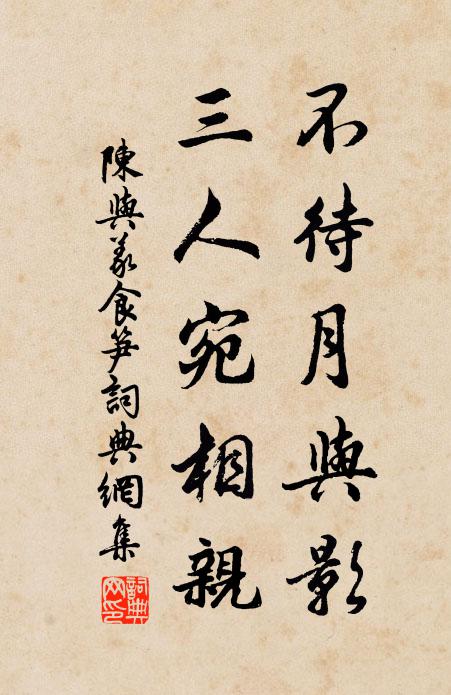 不待月與影
三人宛相親
陳與義食笋詞典網集
詞典网印